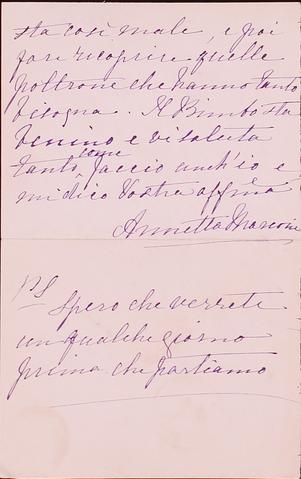 sta così male, e poi
fare ricoprire quelle
poltrone che hanno tanto
bisogna. Il Bimbo sta
benino e vi saluta
tanto, come faccio anch'io e
mi dico Vostra affma
Annetta Marconi
PS
Spero che verrete
un qualche giorno
prima che partiamo